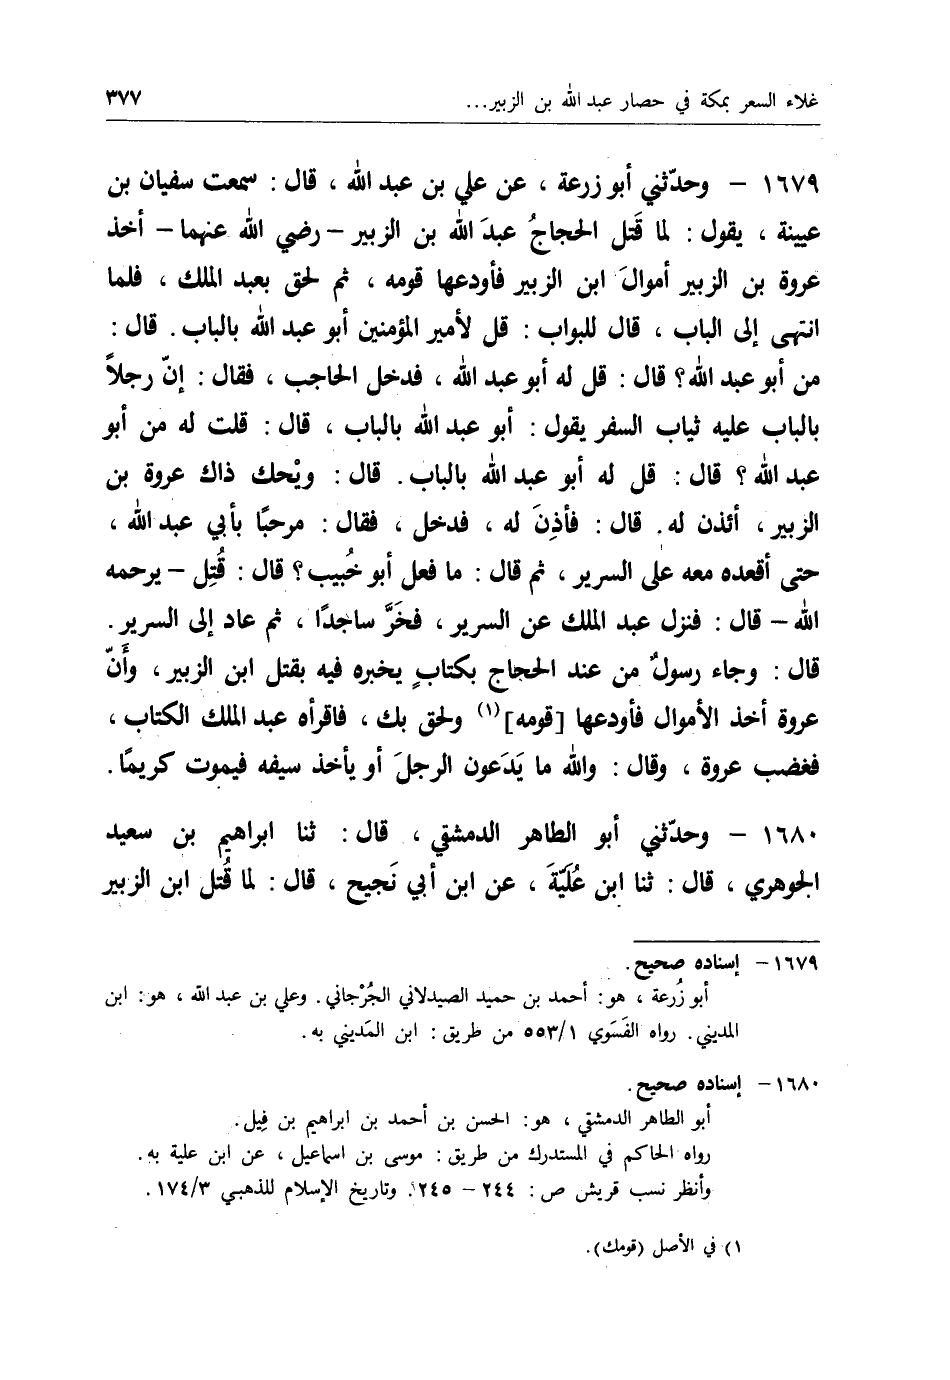 غلاء السعر بمكة في حصار عبد الله بن الزبير... ٣٧٧
١٦٧٩ – وحدّثني أبو زرعة ، عن علي بن عبد الله ، قال : سمعت سفيان بن
عيينة ، يقول : لما قَتل الحجاجُ عبدَ الله بن الزبير – رضي الله عنهما – أخذ
عروة بن الزبير أموالَ ابن الزبير فأودعها قومه ، ثم لحق بعبد الملك ، فلما
انتهى إلى الباب ، قال للبواب : قل لأمير المؤمنين أبو عبد الله بالباب . قال :
من أبو عبد الله؟ قال : قل له أبو عبد الله ، فدخل الحاجب ، فقال : إنّ رجلاً
بالباب عليه ثياب السفر يقول : أبو عبد الله بالباب ، قال : قلت له من أبو
عبد الله ؟ قال : قل له أبو عبد الله بالباب . قال : ويْحك ذاك عروة بن
الزبير ، أئذن له . قال : فأذِنَ له ، فدخل ، فقال : مرحبًا بأبي عبد الله ،
حتى أقعده معه على السرير ، ثم قال : ما فعل أبو خُبيب؟ قال : قُتِل – يرحمه
الله – قال : فنزل عبد الملك عن السرير ، فخَرَّ ساجدًا ، ثم عاد إلى السرير .
قال : وجاء رسولٌ من عند الحجاج بكتابٍ يخبره فيه بقتل ابن الزبير ، وأَنّ
عروة أخذ الأموال فأودعها [قومه](١) ولحق بك ، فاقرأه عبد الملك الكتاب ،
فغضب عروة ، وقال : والله ما يَدَعون الرجلَ أو يأخذ سيفه فيموت كريمًا .
١٦٨٠ – وحدّثني أبو الطاهر الدمشقي ، قال : ثنا ابراهيم بن سعيد
الجوهري ، قال : ثنا ابن عُلَيّةَ ، عن ابن أبي نَجيح ، قال : لما قُتل ابن الزبير
١٦٧٩ – إسناده صحيح .
أبو زُرعة ، هو : أحمد بن حميد الصيدلاني الجُرْجاني . وعلي بن عبد الله ، هو : ابن
المديني . رواه الفَسَوي ٥٥٣/١ من طريق : ابن المَديني به .
١٦٨٠ – إسناده صحيح .
أبو الطاهر الدمشقي ، هو : الحسن بن أحمد بن ابراهيم بن فِيل .
رواه الحاكم في المستدرك من طريق : موسى بن اسماعيل ، عن ابن علية به .
وأنظر نسب قريش ص : ٢٤٤ – ٢٤٥ . وتاريخ الإسلام للذهبي ١٧٤/٣ .
١) في الأصل (قومك) .